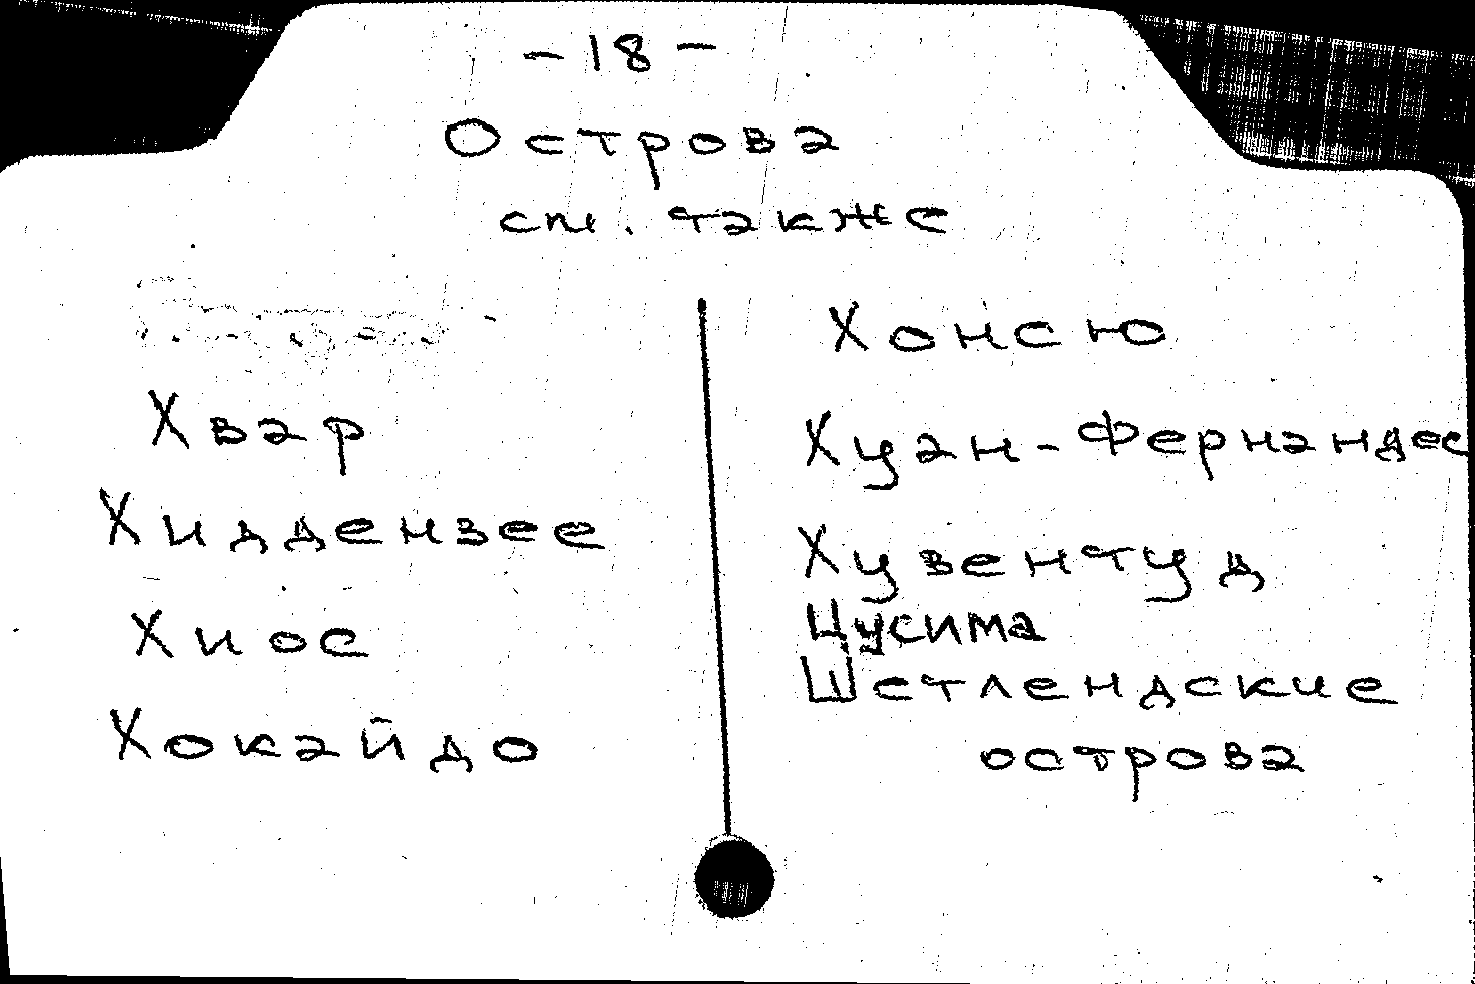 - 18 -
Острова
см. также
Хвар
Хиддензее
Хиос
Хокайдо
Хонсю
Хуан-Фернандес
Хувентуд
Цусима
Шетлендские
острова